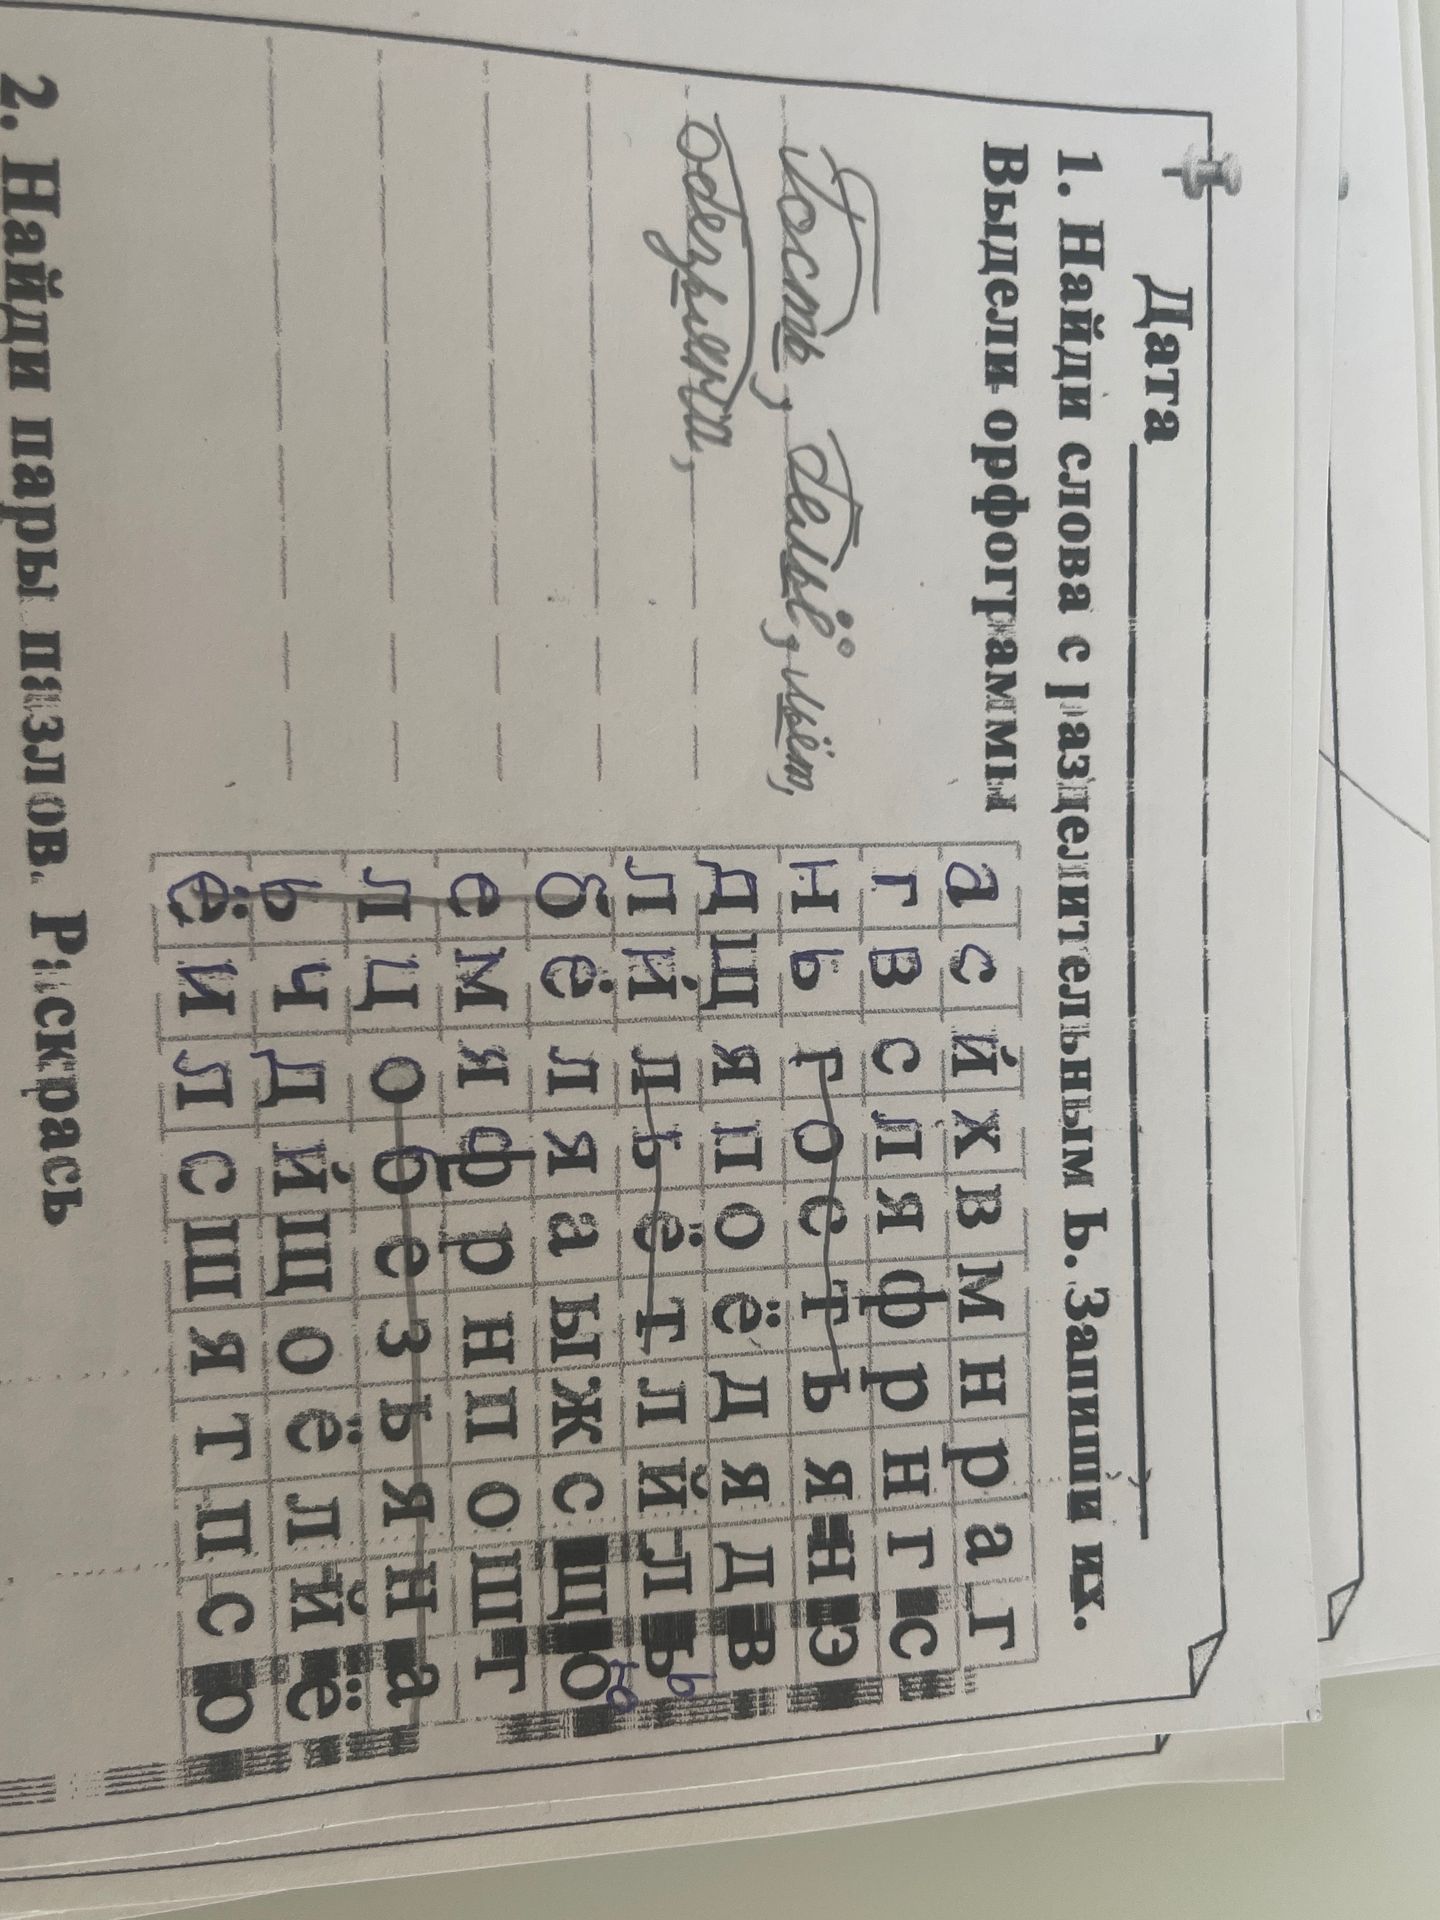 Дата
1. Найди слова с разделительным Ь. Запиши их.
Выдели орфограммы
Гость, бельё, льёт,
обезьяна,
а с й х в м н р а г
г в с л я ф р н г с
н ь г о с т ь я н э
д щ я п о ё д я д в
л й л ь ё т л й л ь ь
б ё л я а ы ж с щ ю ю
е м я ф р н п о ш т
л ц о б е з ь я н а
ь ч д й щ о ё л й ё
ё и л с ш я т п с о
2. Найди пары пазлов. Раскрась